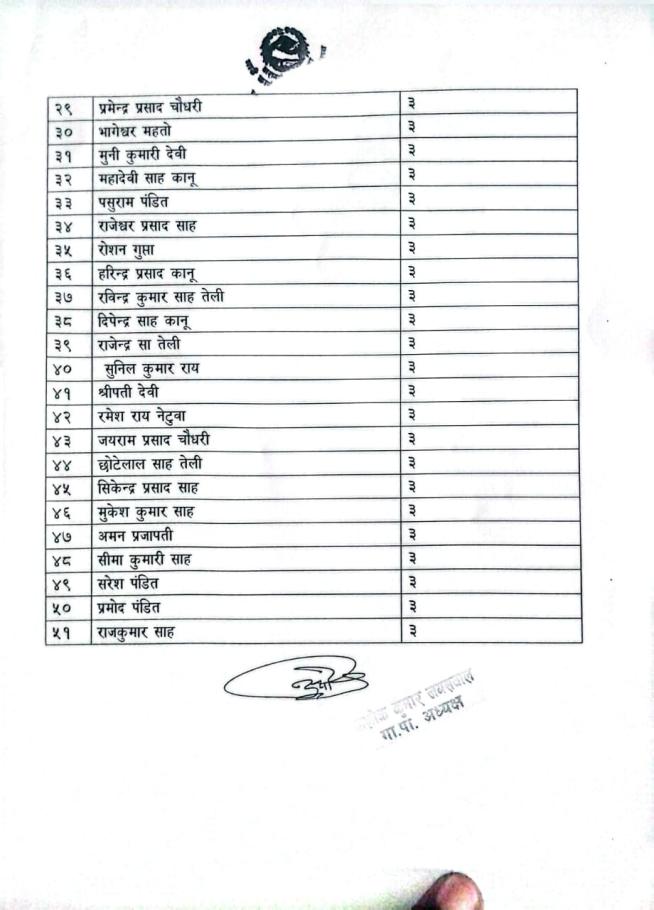 २९ प्रमेन्द्र प्रसाद चौधरी ३
३० भागेश्वर महतो ३
३१ मुनी कुमारी देवी ३
३२ महादेवी साह कानू ३
३३ पसुराम पंडित ३
३४ राजेश्वर प्रसाद साह ३
३५ रोशन गुप्ता ३
३६ हरिन्द्र प्रसाद कानू ३
३७ रविन्द्र कुमार साह तेली ३
३८ दिपेन्द्र साह कानू ३
३९ राजेन्द्र सा तेली ३
४० सुनिल कुमार राय ३
४१ श्रीपती देवी ३
४२ रमेश राय नेटुवा ३
४३ जयराम प्रसाद चौधरी ३
४४ छोटेलाल साह तेली ३
४५ सिकेन्द्र प्रसाद साह ३
४६ मुकेश कुमार साह ३
४७ अमन प्रजापती ३
४८ सीमा कुमारी साह ३
४९ सरेश पंडित ३
५० प्रमोद पंडित ३
५१ राजकुमार साह ३
कुमार
गा.पा. अध्यक्ष